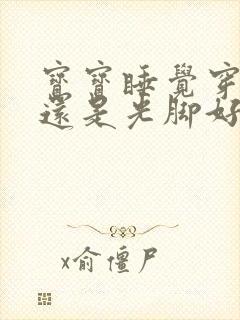 寶寶睡覺穿
還是光腳好
x俞僵尸